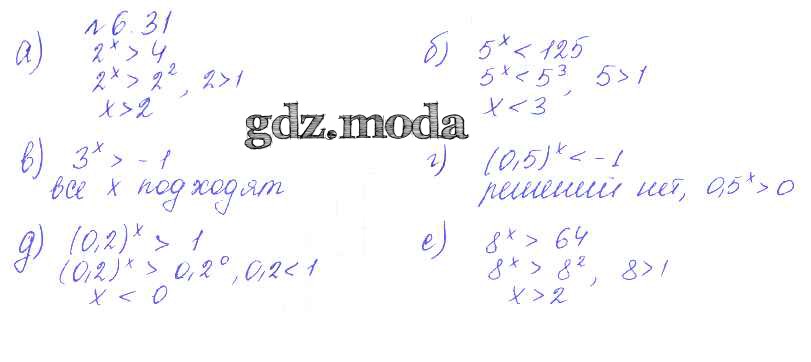 № 6.31
а) 2ˣ > 4
2ˣ > 2², 2>1
x>2
б) 5ˣ < 125
5ˣ < 5³, 5>1
x < 3
gdz.moda
в) 3ˣ > -1
все x подходят
г) (0,5)ˣ < -1
решений нет, 0,5ˣ > 0
д) (0,2)ˣ > 1
(0,2)ˣ > 0,2⁰, 0,2<1
x < 0
е) 8ˣ > 64
8ˣ > 8², 8>1
x>2